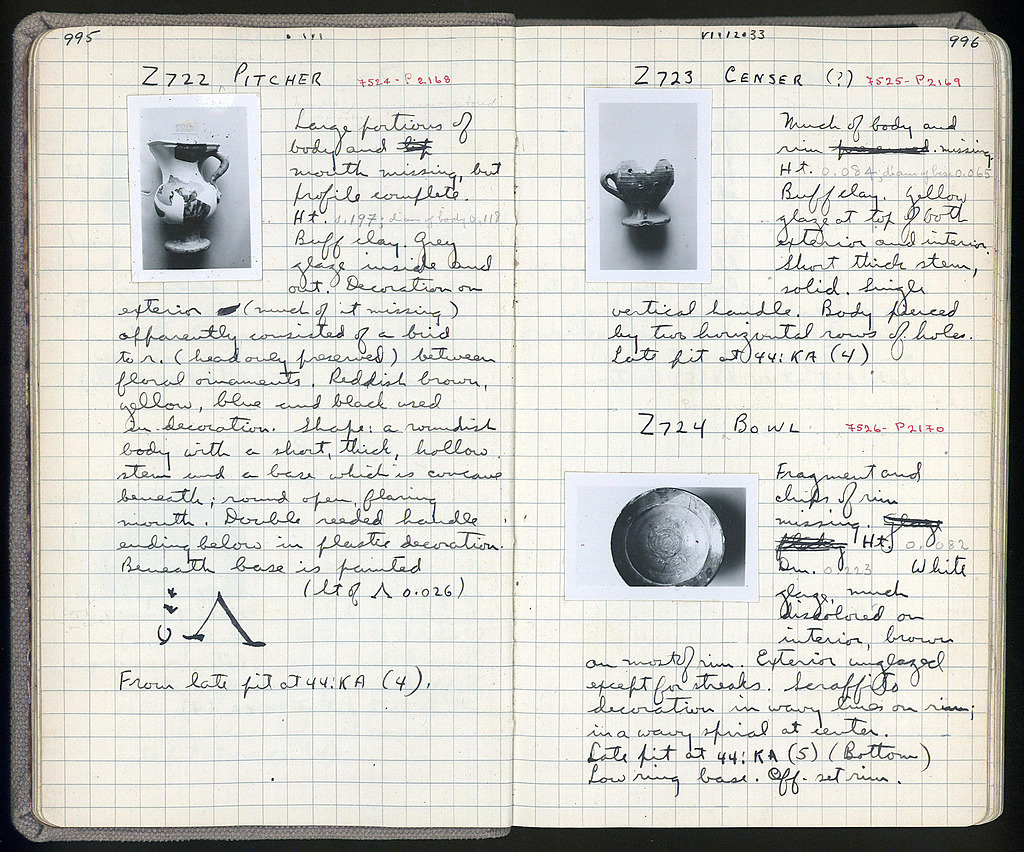 995
Z722 PITCHER 7524-P2168
Large portions of
body and lip
mouth missing, but
profile complete.
Ht. 0.197; diam of body 0.118
Buff clay. Grey
glaze inside and
out. Decoration on
exterior (much of it missing)
apparently consisted of a bird
to r. (head only preserved) between
floral ornaments. Reddish brown,
yellow, blue and black used
in decoration. Shape: a roundish
body with a short, thick, hollow
stem and a base which is concave
beneath; round open flaring
mouth. Double reeded handle
ending below in plastic decoration.
Beneath base is painted
(ht of Λ 0.026)
Λ
From late pit at 44:KA (4).
VIII2033
996
Z723 CENSER (?) 7525-P2169
Much of body and
rim preserved. missing.
Ht. 0.084; diam of base 0.065
Buff clay. Yellow
glaze at top of both
exterior and interior.
Short thick stem,
solid. Single
vertical handle. Body pierced
by two horizontal rows of holes.
Late pit at 44:KA (4)
Z724 BOWL 7526-P2170
Fragment and
chips of rim
missing.
Ht. 0.082
Dm. 0.223 White
glaze, much
discolored on
interior, brown
on most of rim. Exterior unglazed
except for streaks. Scraffito
decoration in wavy lines on rim;
in a wavy spiral at center.
Late pit at 44:KA (5) (Bottom)
Low ring base. Off-set rim.